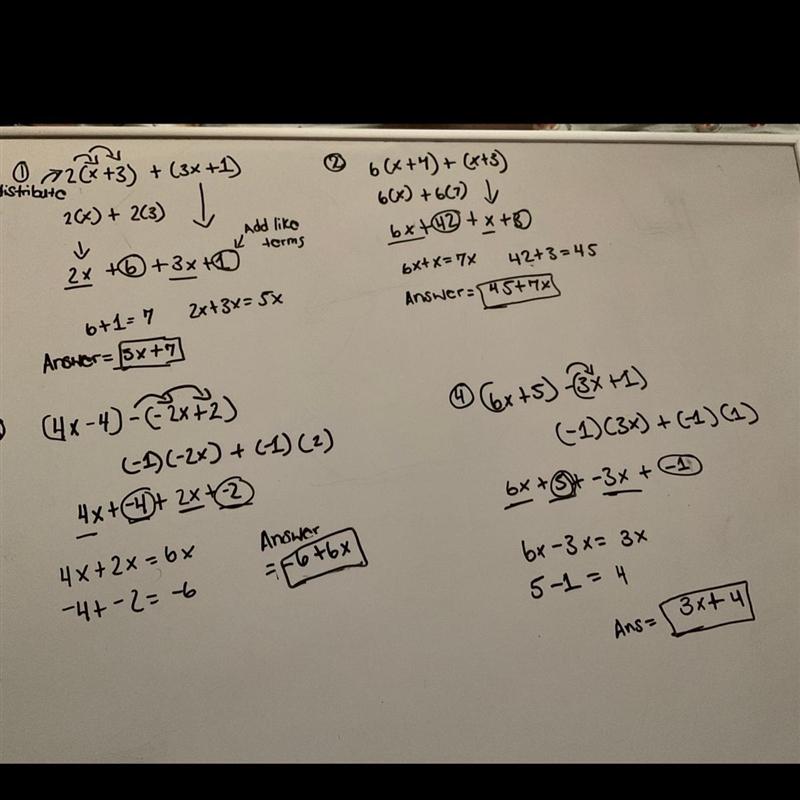 ① 2(x+3) + (3x+1)
distribute
2(x) + 2(3)
Add like
terms
2x + 6 + 3x + 1
6+1 = 7 2x+3x = 5x
Answer = 5x+7
② 6(x+4) + (x+3)
6(x) + 6(7)
6x + 42 + x + 3
6x+x = 7x 42+3 = 45
Answer = 45+7x
(4x-4) - (-2x+2)
(-1)(-2x) + (-1)(2)
4x + -4 + 2x + -2
4x+2x = 6x
-4+-2 = -6
Answer
= -6+6x
④ (6x+5) - (3x+1)
(-1)(3x) + (-1)(1)
6x + 5 + -3x + -1
6x-3x = 3x
5-1 = 4
Ans = 3x+4